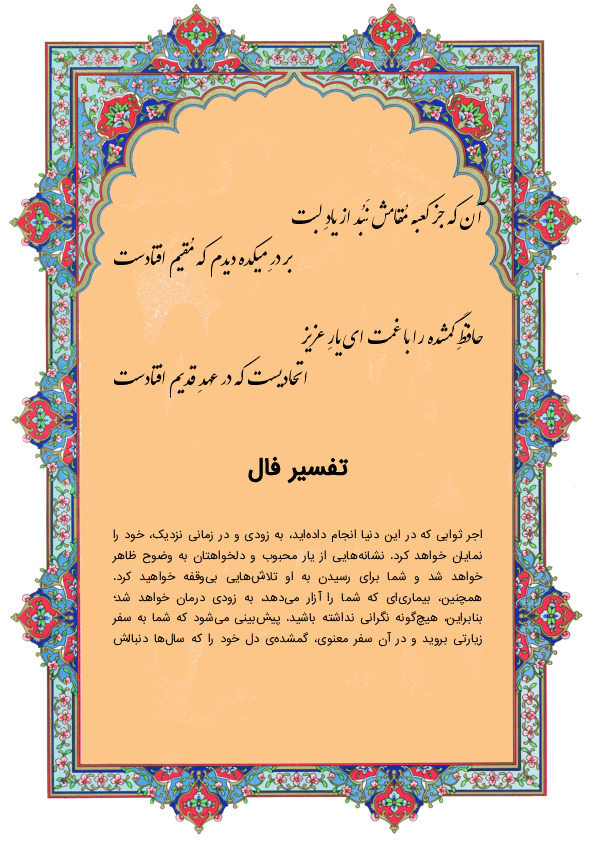 آن که جز کعبه مُقامش نَبُد از یادِ لبت
بر درِ میکده دیدم که مُقیم افتادست
حافظِ گمشده را با غمت ای یارِ عزیز
اتحادیست که در عهدِ قدیم افتادست
تفسیر فال
اجر ثوابی که در این دنیا انجام داده‌اید، به زودی و در زمانی نزدیک، خود را
نمایان خواهد کرد. نشانه‌هایی از یار محبوب و دلخواهتان به وضوح ظاهر
خواهد شد و شما برای رسیدن به او تلاش‌هایی بی‌وقفه خواهید کرد.
همچنین، بیماری‌ای که شما را آزار می‌دهد، به زودی درمان خواهد شد؛
بنابراین، هیچ‌گونه نگرانی نداشته باشید. پیش‌بینی می‌شود که شما به سفر
زیارتی بروید و در آن سفر معنوی، گمشده‌ی دل خود را که سال‌ها دنبالش